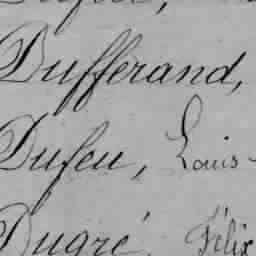 Dufferand,
Dufeu, Louis-
Dugré, Félix